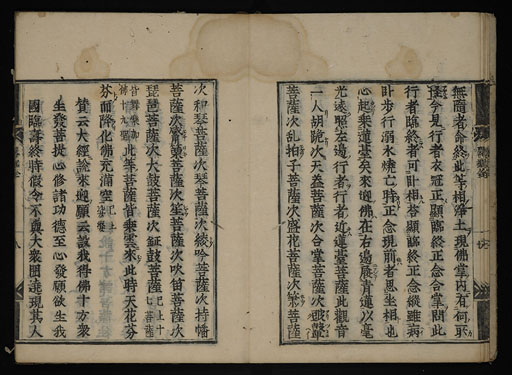 無商者命終此等相淨土現佛掌内有何取
今見行者衣冠正顯臨終正念合掌問此
行者臨終者可計相答顯臨終正念縱雖病
計步行弱水燒亡時正念現前者思坐相也
心起乘蓮臺矣來迎佛在右邊展青蓮以毫
光遠照左邊行者行者近蓮臺菩薩此觀音
一人胡跪次天蓋菩薩次合掌菩薩次
菩薩次乱拍子菩薩次盛花菩薩次菩薩
次和琴菩薩次琴菩薩次菩薩次持幡
菩薩次菩薩次笙菩薩次吹笛菩薩次
琵琶菩薩次大鼓菩薩次鉦鼓菩薩已上十七菩薩
此等菩薩皆乘雲來此時天花芬
芬而降化佛充滿空已上
贊云大經說來迎願云設我得佛十方衆
生發菩提心修諸功德至心發願欲生我
國臨壽終時假令不與大衆圍遶現其人